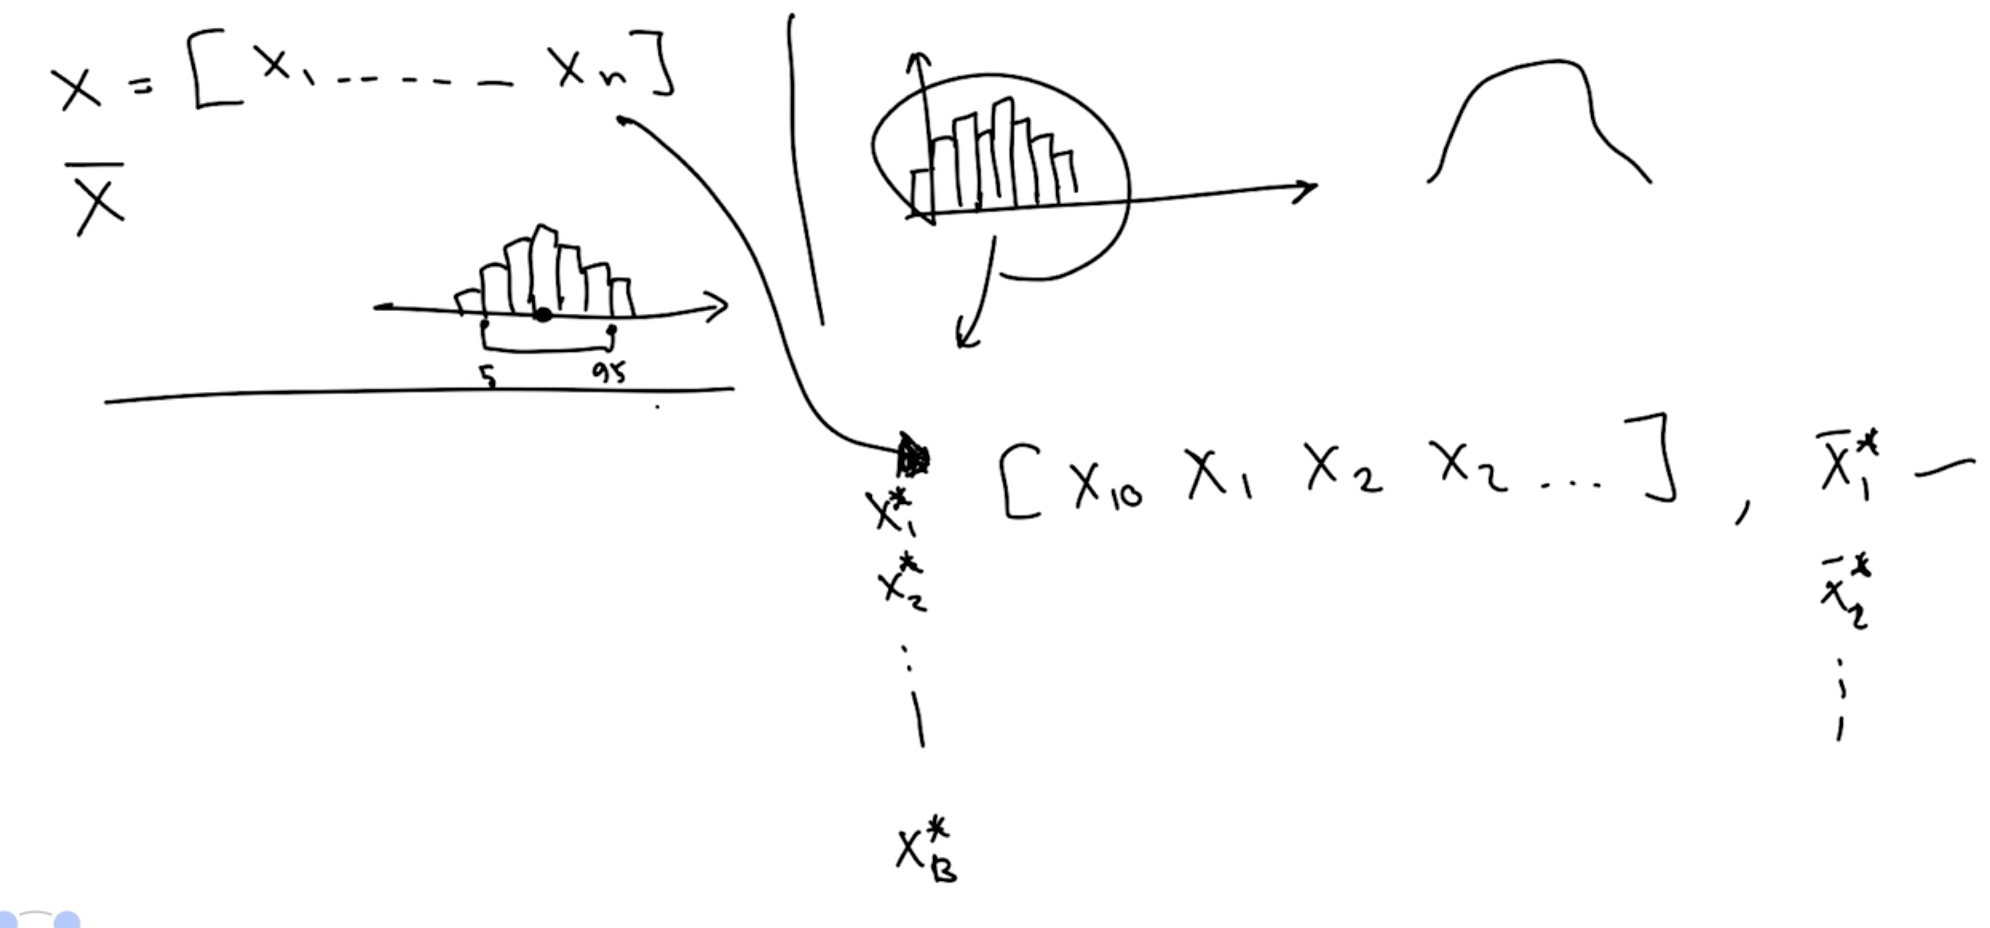 X = [ X₁ ----- Xₙ ]
X̄
5 95
[ X₁₀ X₁ X₂ X₂ ... ] , X̄₁* —
X₁*
X₂* X̄₂*
X_B*